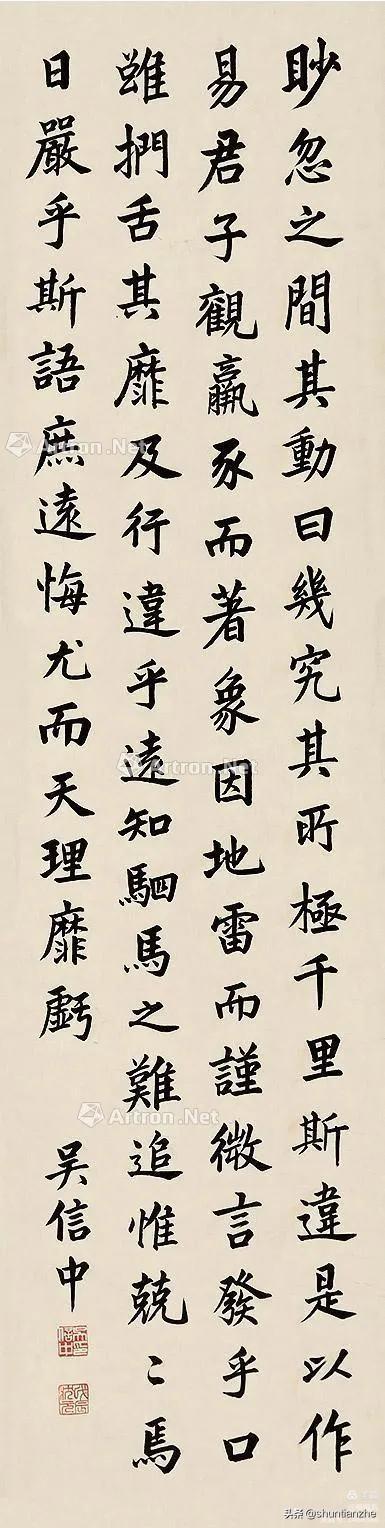 眇忽之間其動曰幾究其所極千里斯違是以作
易君子觀羸豕而著象因地雷而謹微言發乎口
雖捫舌其靡及行違乎遠知駟馬之難追惟兢〻焉
日嚴乎斯語庶遠悔尤而天理靡虧
吴信中
Artron.Net
Artron.Net
Artron.Net
头条 @shuntianzhe